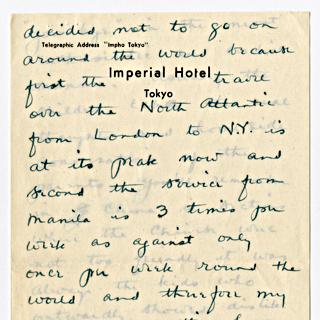 decided not to go on
Telegraphic Address "Impho Tokyo"
around the world because
Imperial Hotel
first the travel
Tokyo
over the North Atlantic
from London to N.Y. is
at its peak now and
second the service from
Manila is 3 times per
week as against only
once per week round the
world and therefore my